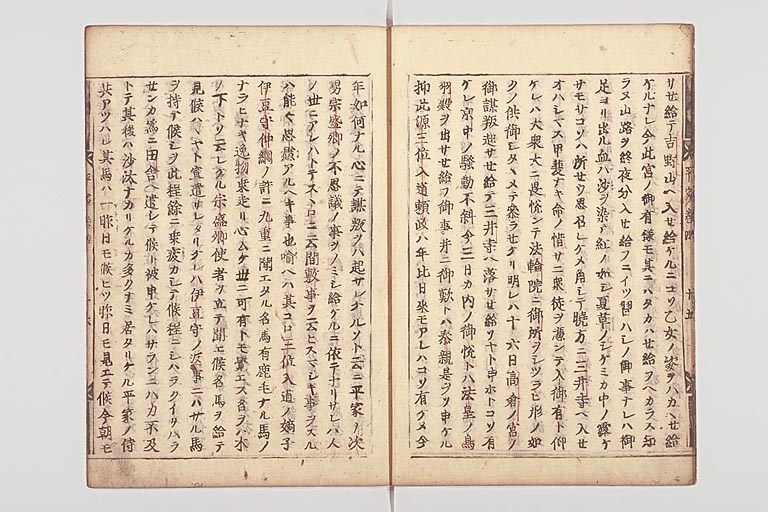 リサセ給テ吉野山ヘ入セ給ケルニコソ乙女ノ姿ヲハカヘサセ給
ケルナレ今此宮ノ御有様モ其ニハタカハセ給ヲヘカラス知
ラヌ山路ヲ終夜分入セ給フニイツ習ハシノ御事ナレハ御
足ヨリ出ル血ハ沙ヲ染テ紅ノ如シ夏草ノシケミカ中ノ露ケ
サモサコソハ所セウ思召レケメ角シテ暁方ニ三井寺ヘ入セ
オハシマス甲斐ナキ命ノ惜サニ衆徒ヲ憑ンテ入御有ト仰
ケレハ大衆大ニ畏悦シテ法輪院ニ御所ヲシツラヒ形ノ如
クノ供御シタヽメテ参ラセケリ明レハ十六日高倉ノ宮ノ
御謀叛起サセ給テ三井寺ヘ落サセ給ヌヤト申ホトコソ有
ケレ京中ノ騒動不斜今三日カ内ノ御悦トハ法皇ノ鳥
羽殿ヲ出サセ給フ御事并ニ御歎トハ泰親是ヲソ申ケル
抑此源三位入道頼政ハ年比日来モアレハコソ有ケメ今
年如何ナル心ニテ謀叛ヲハ起サレケルソト云ニ平家ノ次
男宗盛卿ノ不思議ノ事ヲノミシ給ケルニ依テナリサレハ人
ノ世ニアレハトテスヽロニ云間敷事ヲ云ヒスマシキ事ヲスル
ハ能々思慮アルヘキ事也喩ヘハ其コロ三位入道ノ嫡子
伊豆守仲綱ノ許ニ九重ニ聞エタル名馬有鹿毛ナル馬ノ
ナラヒナキ逸物乗走リ心ムケ世ニ可有トモ覚エス名ヲハ木
ノ下トソ云ケル宗盛卿使者ヲ立テ聞エ候名馬ヲ給テ
見候ハヽヤト宣遣サレタリケレハ伊豆守ノ返事ニハサル馬
ヲ持テ候ヒシヲ此程余ニ乗疲カシテ候程ニシハラクイタハラ
センカ為ニ田舎ヘ遣シテ候ト被申ケレハサランニハカ不及
トテ其後ハ沙汰ナカリケルカ多クナミ居タリケル平家ノ侍
共アツハレ其馬ハ一昨日モ候ヒツ昨日モ見エテ候今朝モ